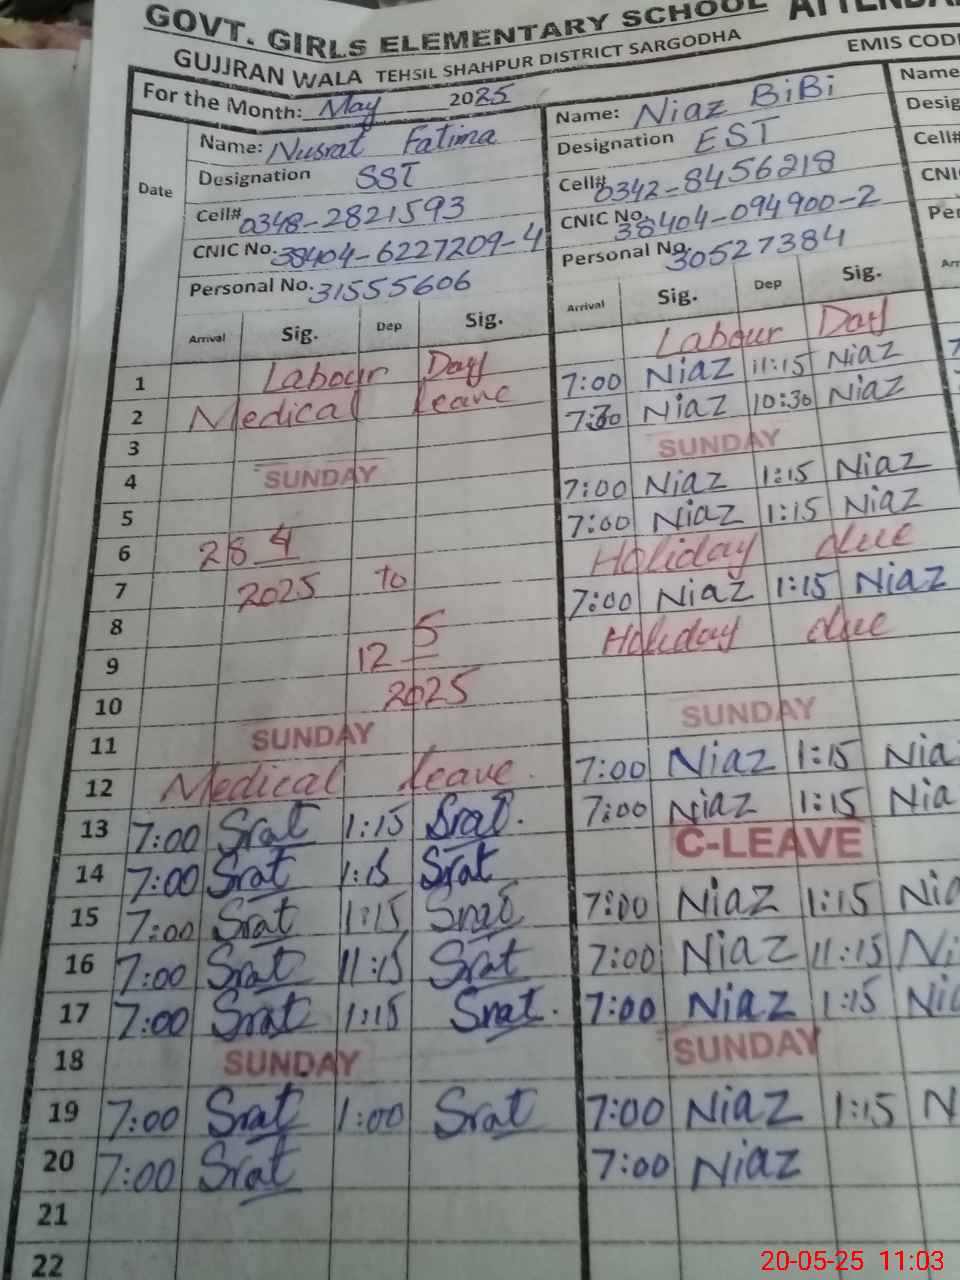 GOVT. GIRLS ELEMENTARY SCHOOL
GUJJRAN WALA TEHSIL SHAHPUR DISTRICT SARGODHA
EMIS COD
For the Month: May 2025
Date
Name: Nusrat Fatima
Designation SST
Cell# 0348-2821593
CNIC No. 38404-6227209-4
Personal No. 31555606
Name: Niaz BiBi
Designation EST
Cell# 0342-8456218
CNIC No. 38404-094900-2
Personal No. 30527384
Name
Desig
Cell#
CNI
Per
Arrival Sig. Dep Sig. Arrival Sig. Dep Sig.
1 Labour Day Labour Day
2 Medical leave 7:00 Niaz 11:15 Niaz
3 7:30 Niaz 10:30 Niaz
4 SUNDAY SUNDAY
5 7:00 Niaz 1:15 Niaz
6 28 4 7:00 Niaz 1:15 Niaz
7 2025 to Holiday due
8 5 7:00 Niaz 1:15 Niaz
9 12 Holiday due
10 2025
11 SUNDAY SUNDAY
12 Medical leave. 7:00 Niaz 1:15 Nia
13 7:00 Srat 1:15 Srat. 7:00 Niaz 1:15 Nia
14 7:00 Srat 1:15 Srat C-LEAVE
15 7:00 Srat 1:15 Srat 7:00 Niaz 1:15 Nia
16 7:00 Srat 11:15 Srat 7:00 Niaz 11:15 Ni
17 7:00 Srat 1:15 Srat. 7:00 Niaz 1:15 Nia
18 SUNDAY SUNDAY
19 7:00 Srat 1:00 Srat 7:00 Niaz 1:15 N
20 7:00 Srat 7:00 Niaz
21
22
20-05-25 11:03